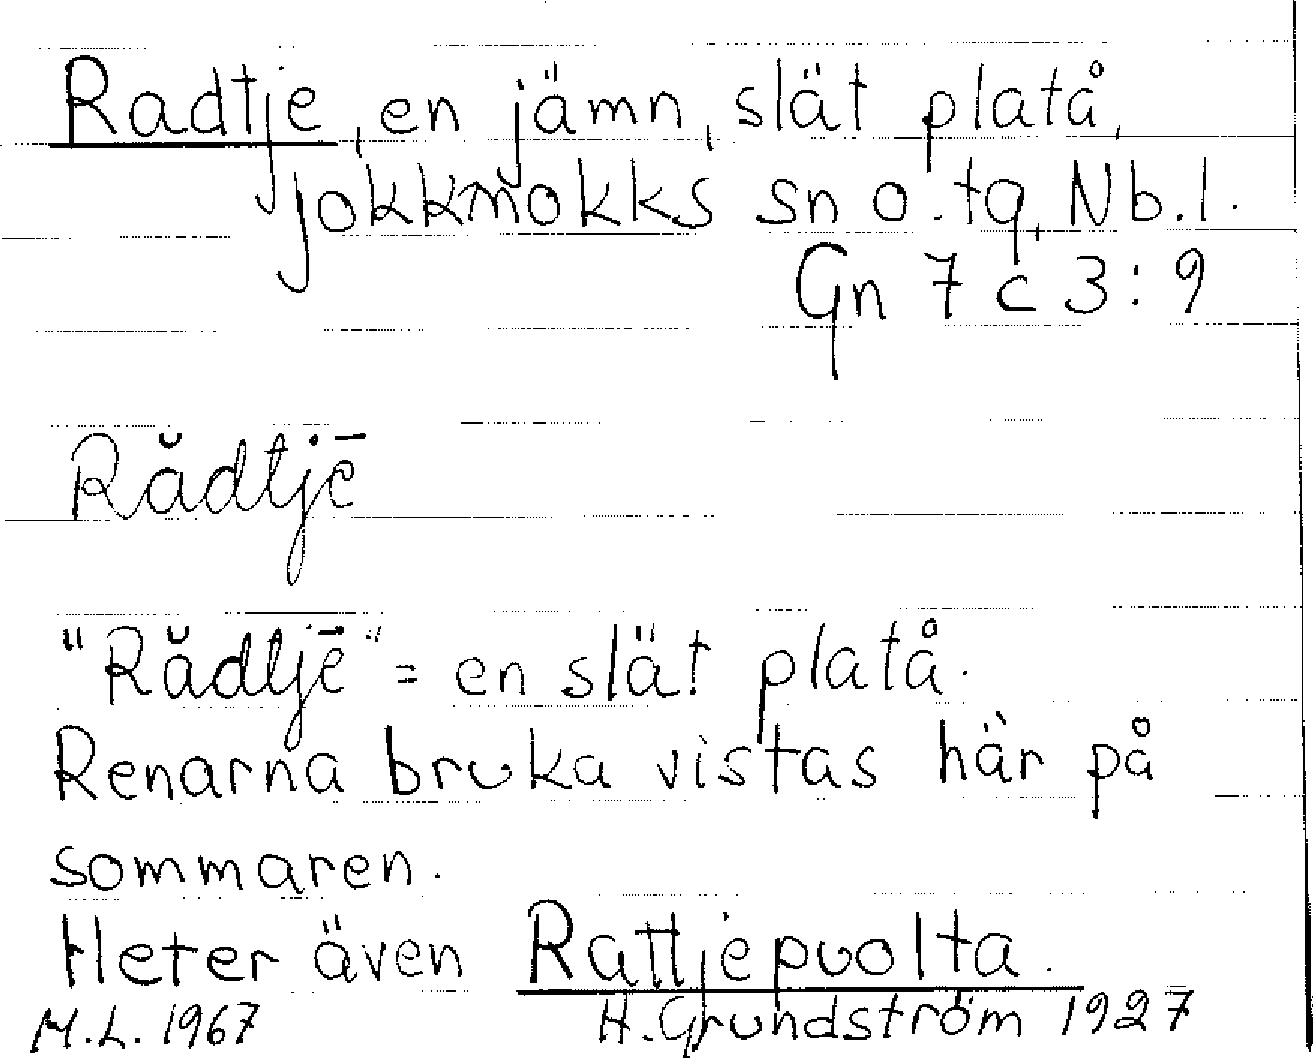 Radtje, en jämn, slät platå,
Jokkmokks sn o. tg, Nb. l.
Gn 7 c 3:9
Rădtjē
"Rădtjē" = en slät platå.
Renarna bruka vistas här på
sommaren.
Heter även Rattjepuolta.
M.L. 1967 H. Grundström 1927